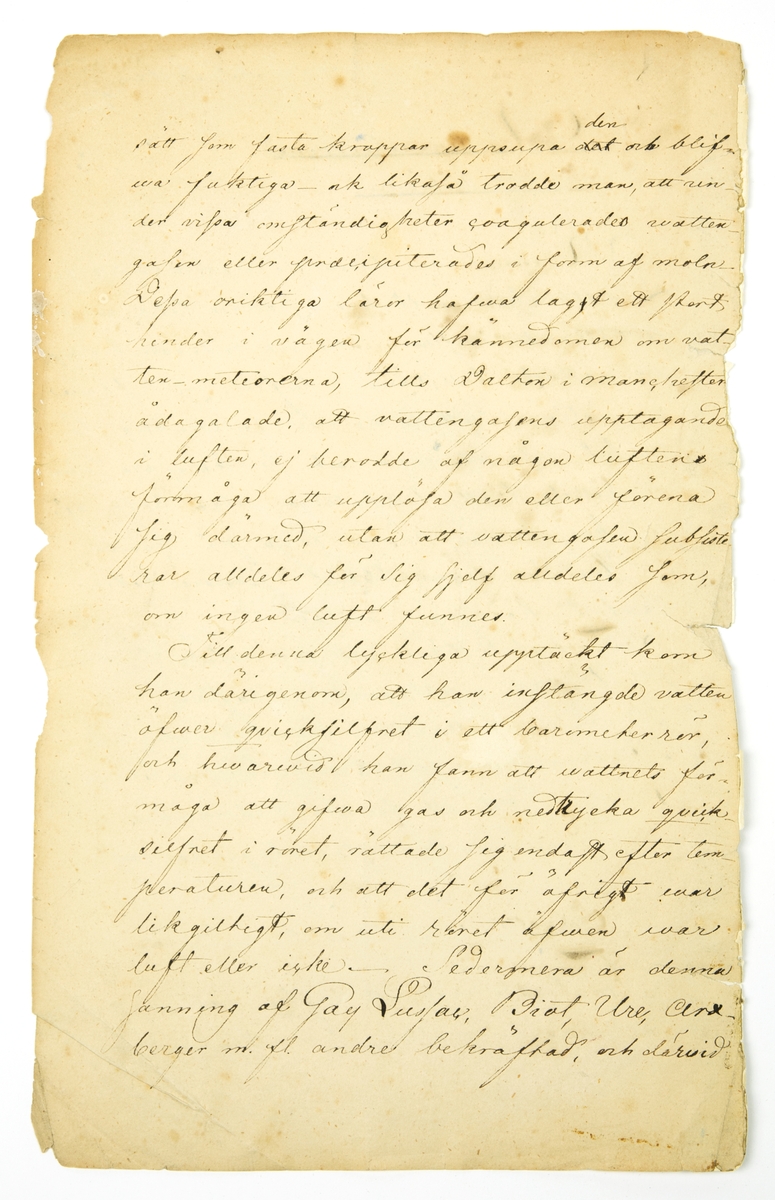 den
sätt som fasta kroppar uppsupa det och blif-
wa fuktiga – ok likaså trodde man, att un-
der vissa omständigheter coagulerades watten
gasen eller præcipiterades i form af moln –
Dessa oriktiga läror hafwa lagt ett stort
hinder i vägen för kännedomen om vat-
ten-meteorerna, tills Dalton i Manchester
ådagalade, att vattengasens upptagande
i luften, ej berodde af någon luftens
förmåga att upplösa den eller förena
sig därmed, utan att vattengasen subsiste
rar alldeles för sig sjelf alldeles som,
om ingen luft funnes.
Till denna lyckliga upptäckt kom
han därigenom, att han instängde vatten
öfwer qvicksilfret i ett barometerrör,
och hwarwid han fann att wattnets för-
måga att gifwa gas och nedtrycka qvick-
silfret i röret, rättade sig endast efter tem-
peraturen, och att det för öfrigt war
likgiltigt, om uti röret äfwen war
luft eller icke – Sedermera är denna
sanning af Gay Lussac, Biot, Ure, Arz-
berger m. fl. andre bekräftad, och därwid